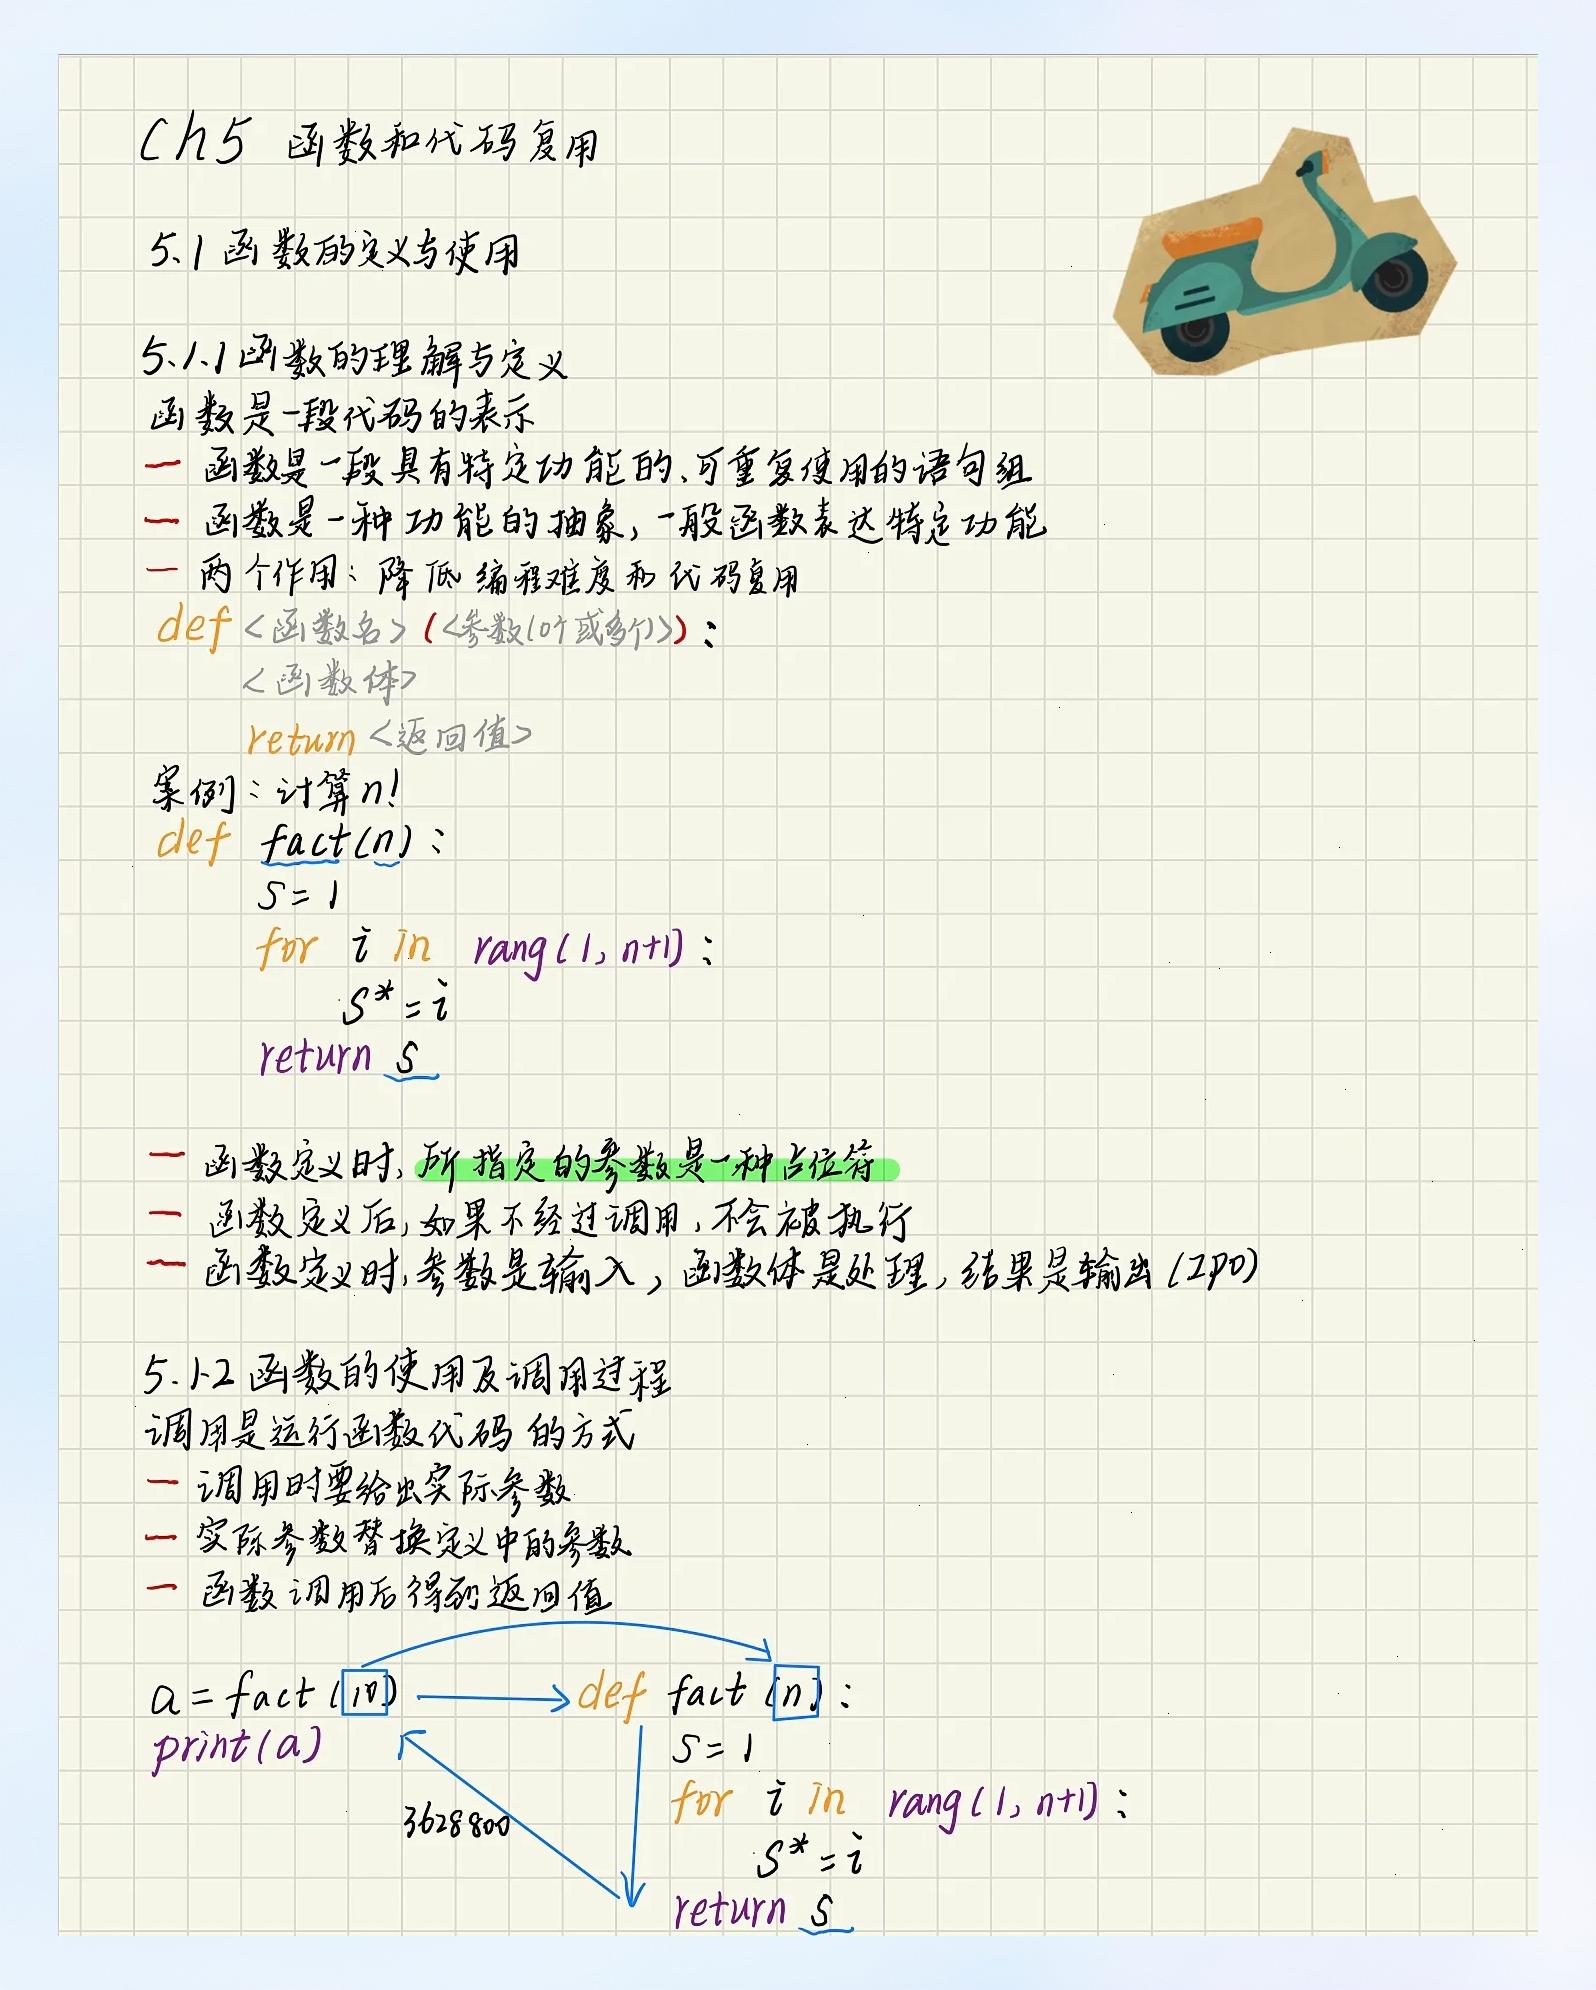 Ch5 函数和代码复用
5.1 函数的定义与使用
5.1.1 函数的理解与定义
函数是一段代码的表示
一 函数是一段具有特定功能的、可重复使用的语句组
一 函数是一种功能的抽象,一般函数表达特定功能
一 两个作用:降低编程难度和代码复用
def <函数名> (<参数(0个或多个)>):
<函数体>
return <返回值>
案例:计算n!
def fact(n):
s=1
for i in rang(1, n+1):
s*=i
return s
一 函数定义时,所指定的参数是一种占位符
一 函数定义后,如果不经过调用,不会被执行
一 函数定义时,参数是输入,函数体是处理,结果是输出(IPO)
5.1.2 函数的使用及调用过程
调用是运行函数代码的方式
一 调用时要给出实际参数
一 实际参数替换定义中的参数
一 函数调用后得到返回值
a=fact(10) def fact(n):
print(a) s=1
for i in rang(1, n+1):
3628800
s*=i
return s